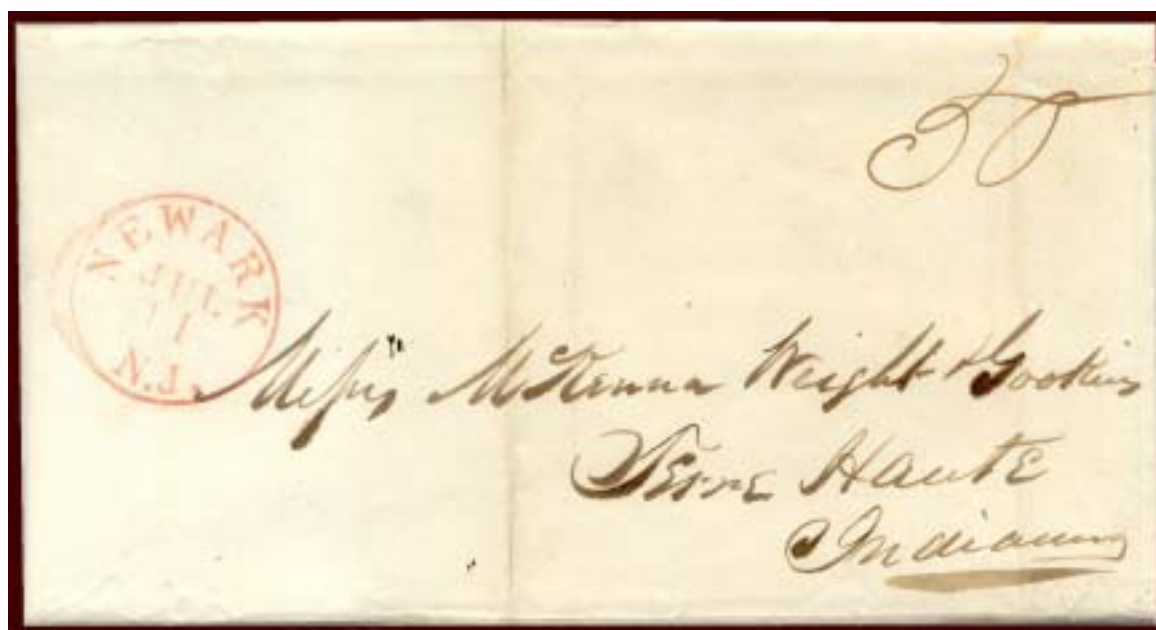 50
NEWARK
JUL
11
N.J.
Messrs McKenna Wright & Gookins
Terre Haute
Indiana